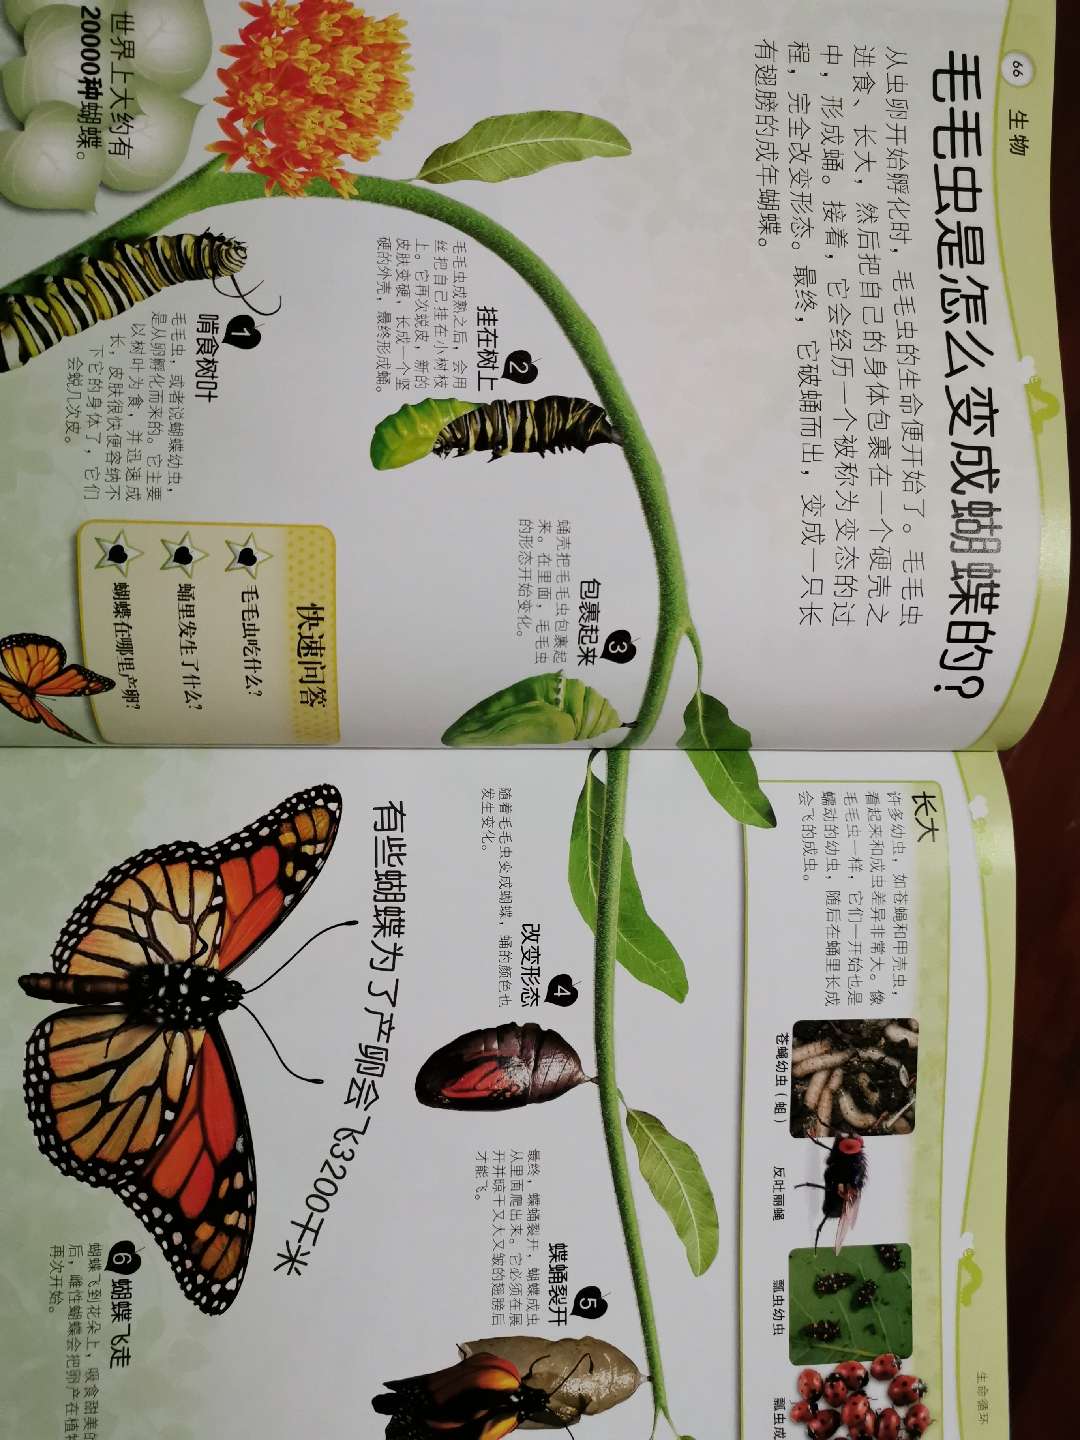 66
生物
毛毛虫是怎么变成蝴蝶的？
从虫卵开始孵化时，毛毛虫的生命便开始了。毛毛虫
进食、长大，然后把自己的身体包裹在一个硬壳之
中，形成蛹。接着，它会经历一个被称为变态的过
程，完全改变形态。最终，它破蛹而出，变成一只长
有翅膀的成年蝴蝶。
世界上大约有
20000种蝴蝶。
1
啃食树叶
毛毛虫，或者说蝴蝶幼虫，
是从卵孵化而来的。它主要
以树叶为食，并迅速成
长，皮肤很快便容纳不
下它的身体了，它们
会蜕几次皮。
2
挂在树上
毛毛虫成熟之后，会用
丝把自己挂在小树枝
上。它再次蜕皮，新的
皮肤变硬，长成一个坚
硬的外壳，最终形成蛹。
3
包裹起来
蛹壳把毛毛虫包裹起
来。在里面，毛毛虫
的形态开始变化。
快速问答
毛毛虫吃什么？
蛹里发生了什么？
蝴蝶在哪里产卵？
生命循环
长大
许多幼虫，如苍蝇和甲壳虫，
看起来和成虫差异非常大。像
毛毛虫一样，它们一开始也是
蠕动的幼虫，随后在蛹里长成
会飞的成虫。
苍蝇幼虫（蛆）
反吐丽蝇
瓢虫幼虫
瓢虫成
4
改变形态
随着毛毛虫变成蝴蝶，蛹的颜色也
发生变化。
5
蝶蛹裂开
最终，蝶蛹裂开，蝴蝶成虫
从里面爬出来。它必须在展
开并晾干又大又皱的翅膀后
才能飞。
有些蝴蝶为了产卵会飞3200千米
6
蝴蝶飞走
蝴蝶飞到花朵上，吸食甜美的
后，雌性蝴蝶会把卵产在植物
再次开始。